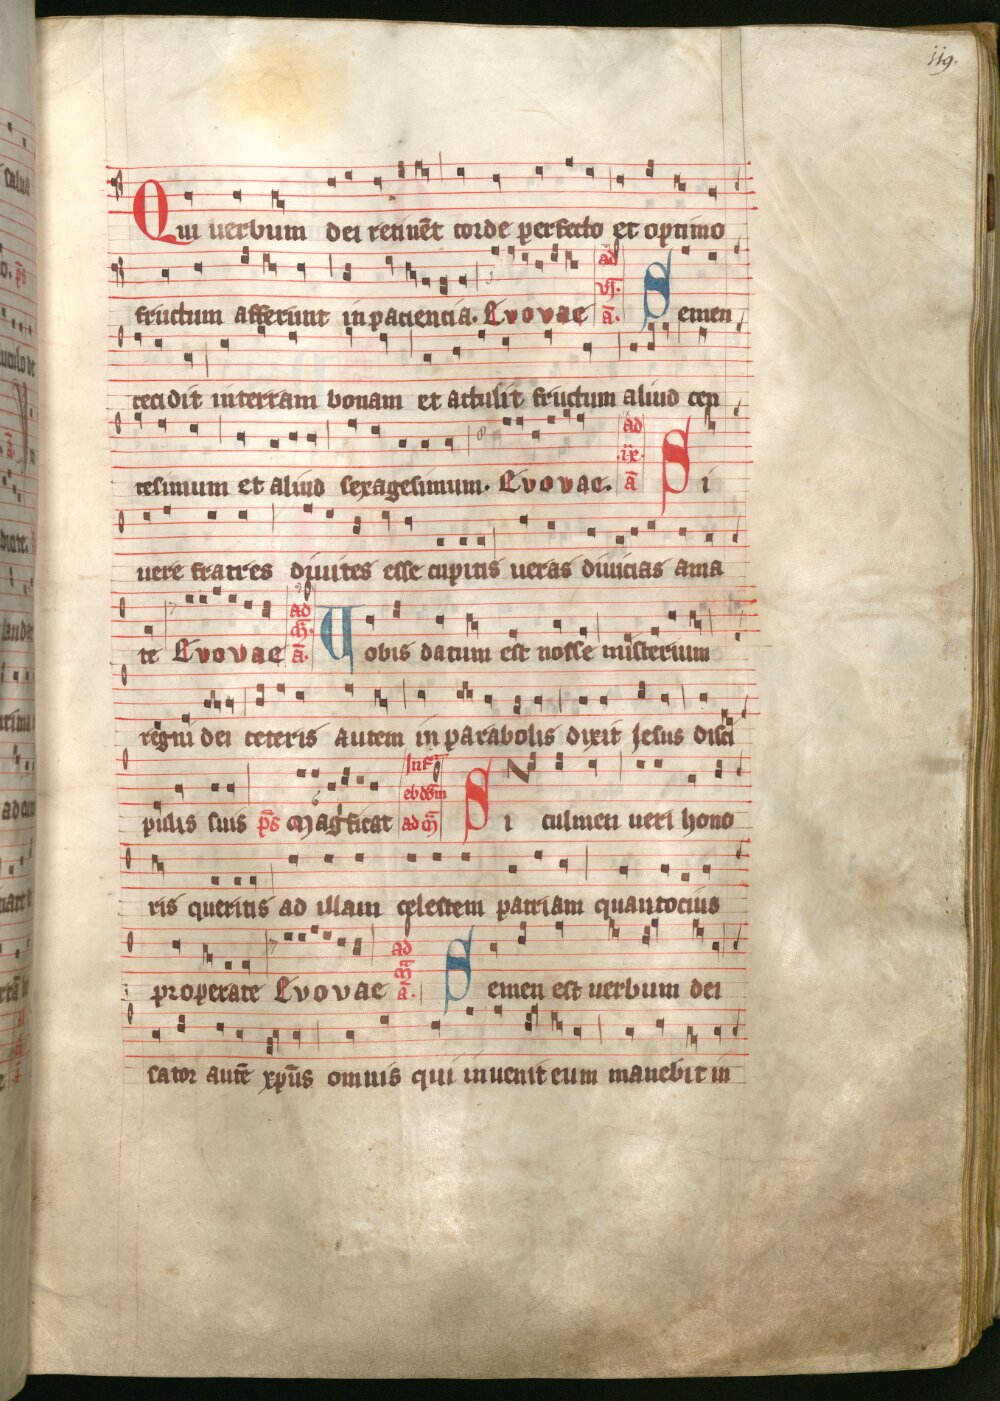 119.
Qui uerbum dei retinēt corde perfecto et optimo
fructum afferunt in paciencia. Evovae ad vj. a̅. Semen
cecidit in terram bonam et attulit fructum aliud cen
tesimum et aliud sexagesimum. Evovae. ad ix. a̅ Si
uere fratres diuites esse cupitis ueras diuicias ama
te Evovae ad m̅. a̅. Uobis datum est nosse misterium
regni dei ceteris autem in parabolis dixit Jesus disci
pulis suis p̅s Mag̅ficat ad m̅ Si culmen ueri hono
ris queritis ad illam celestem patriam quantocius
properate Evovae ad m̅ a̅. Semen est uerbum dei
sator autē xp̅us omnis qui inuenit eum manebit in